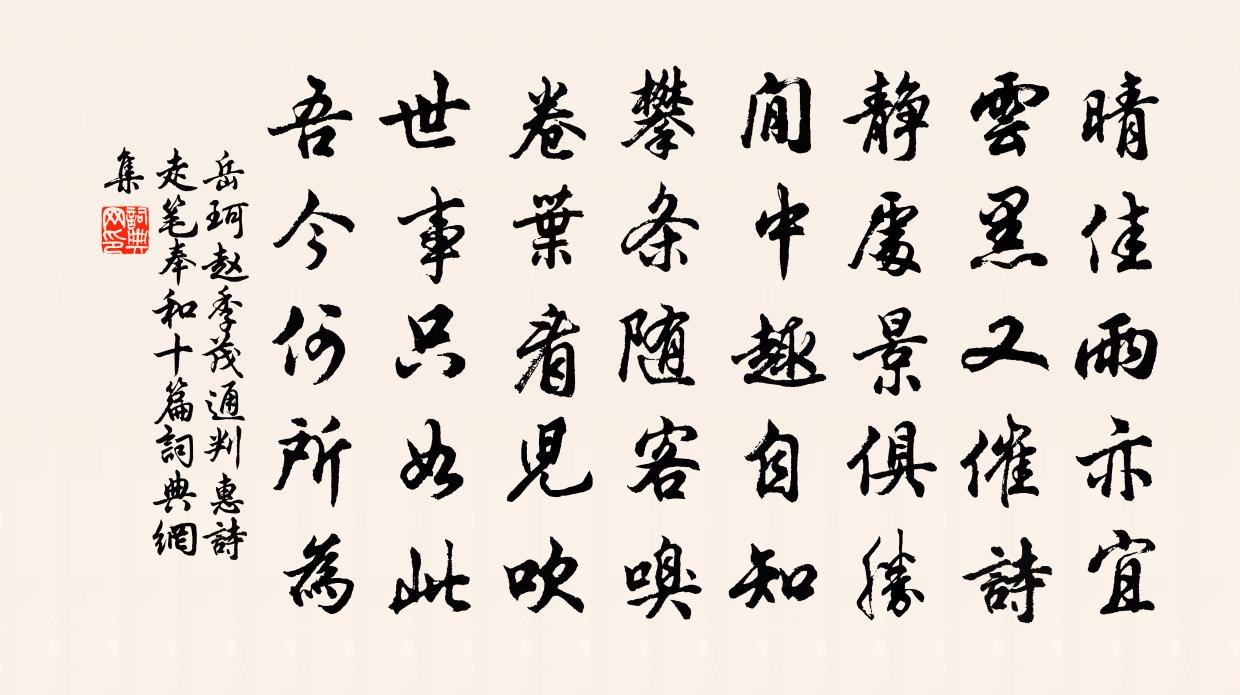 晴佳雨亦宜
雲黑又催詩
靜處景俱勝
閒中趣自知
攀条随客嗅
卷葉看兒吹
世事只如此
吾今何所為
岳珂赵季茂通判惠詩
走笔奉和十篇詞典網
集
詞典网印